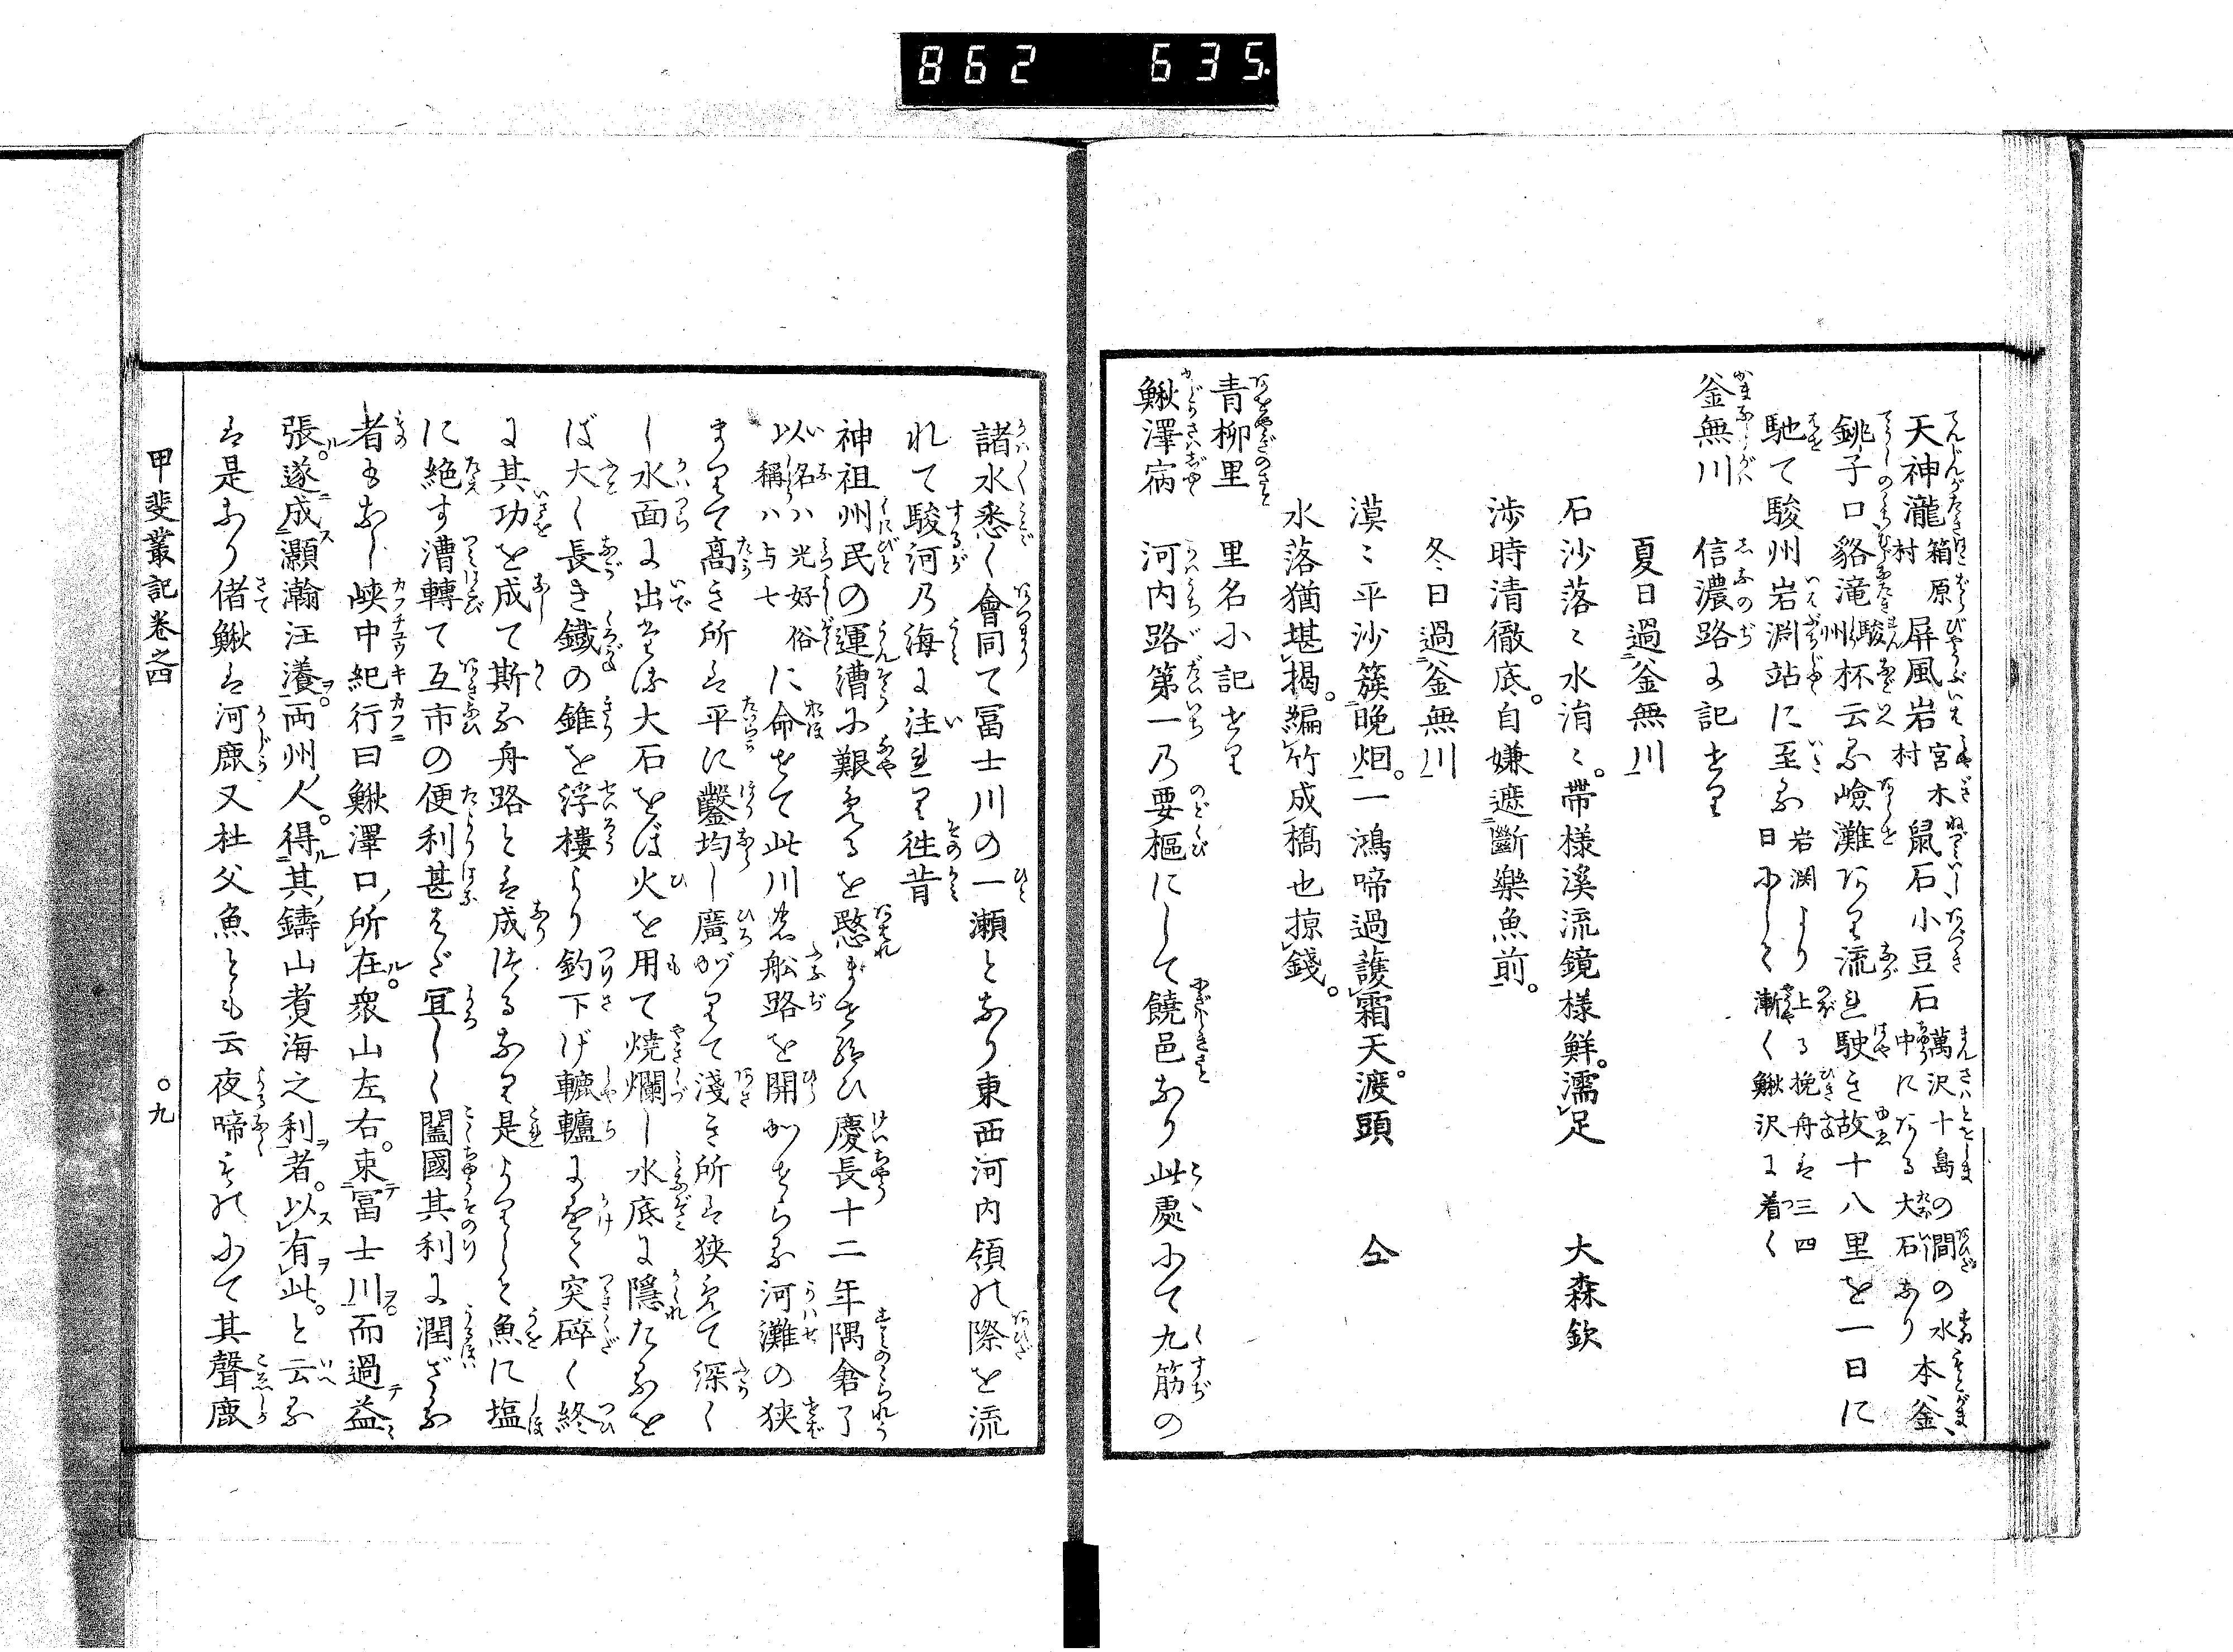 862 635.
天神瀧村箱原屏風岩村宮木鼠石小豆石萬沢十島の間の水中にある大石あり本釜、
銚子口貉滝駿州杯云る嶮灘あり流れ駛き故十八里を一日に
馳て駿州岩淵站に至る岩渕より上る挽舟は三四日にして漸く鰍沢に着く
釜無川 信濃路に記せり
夏日過釜無川
石沙落々水涓々。帶様溪流鏡様鮮。濡足 大森欽
渉時清徹底。自嫌遮斷樂魚前。
冬日過釜無川
漠々平沙簇晩烟。一鴻啼過護霜天。渡頭 仝
水落猶堪揭。編竹成橋也掠錢。
青柳里 里名小記せり
鰍澤宿 河内路第一乃要樞にして饒邑なり此處にて九筋の
諸水悉く會同て冨士川の一瀬となり東西河内領の際を流
れて駿河乃海に注せり徃昔
神祖州民の運漕に艱めるを愍ませ給ひ慶長十二年隅倉了
以名稱ハ光好俗ハ与七に命せて此川の舩路を開かせらる河灘の狭
まりて髙き所は平に鑿均し廣がりて淺き所は狭めて深く
し水面に出たる大石をば火を用て燒爛し水底に隱たるを
ば大く長き鐵の錐を浮樓より釣下げ轆轤にかけて突碎く終
に其功を成て斯る舟路とは成けるなり是よりして魚に塩
に絶す漕轉て互市の便利甚だ冝しく闔國其利に潤ざる
者もなし峡中紀行曰鰍澤口所在。衆山左右。束冨士川而過益
張。遂成灝瀚汪瀁。両州人。得其鑄山煑海之利者。以有此。と云る
は是なり偖鰍は河鹿又杜父魚とも云夜啼ものにて其聲鹿
甲斐叢記卷之四 ○九